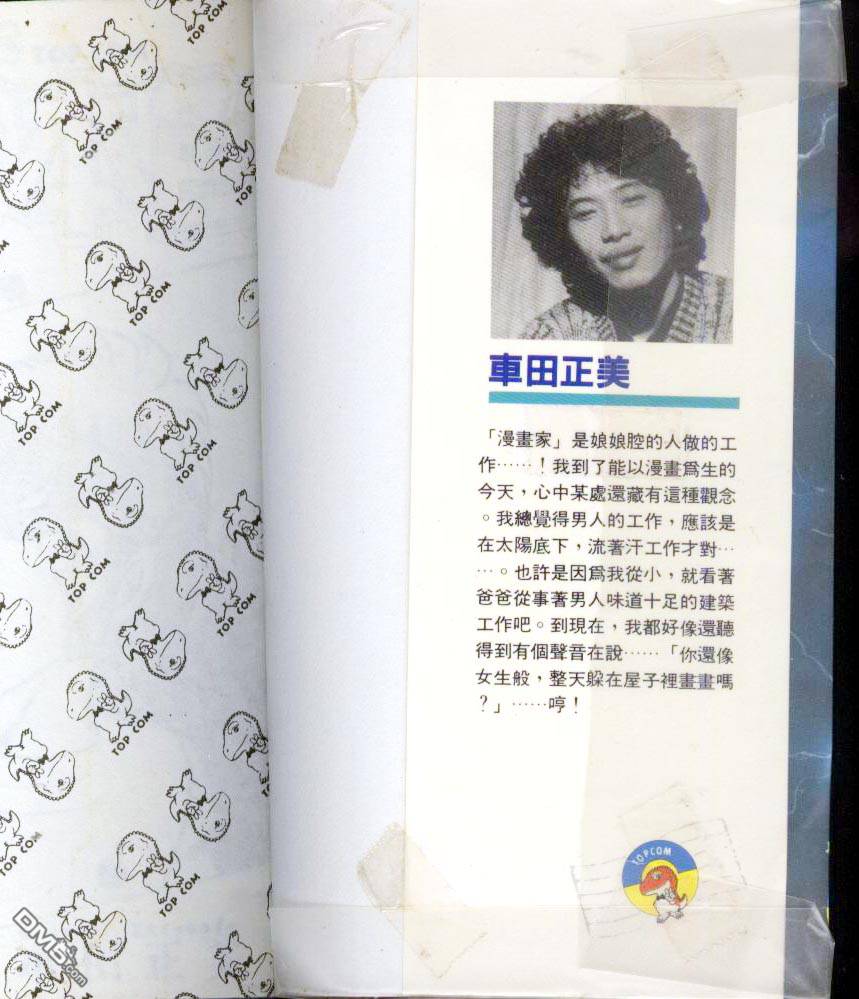 車田正美
「漫畫家」是娘娘腔的人做的工
作……！我到了能以漫畫爲生的
今天，心中某處還藏有這種觀念
。我總覺得男人的工作，應該是
在太陽底下，流著汗工作才對…
…。也許是因爲我從小，就看著
爸爸從事著男人味道十足的建築
工作吧。到現在，我都好像還聽
得到有個聲音在說……「你還像
女生般，整天躲在屋子裡畫畫嗎
？」……哼！
TOPCOM
TOP COM
TOP COM
TOP COM
TOP COM
TOP COM
TOP COM
TOP COM
TOP COM
TOP COM
TOP COM
TOP COM
TOP COM
DM5.com